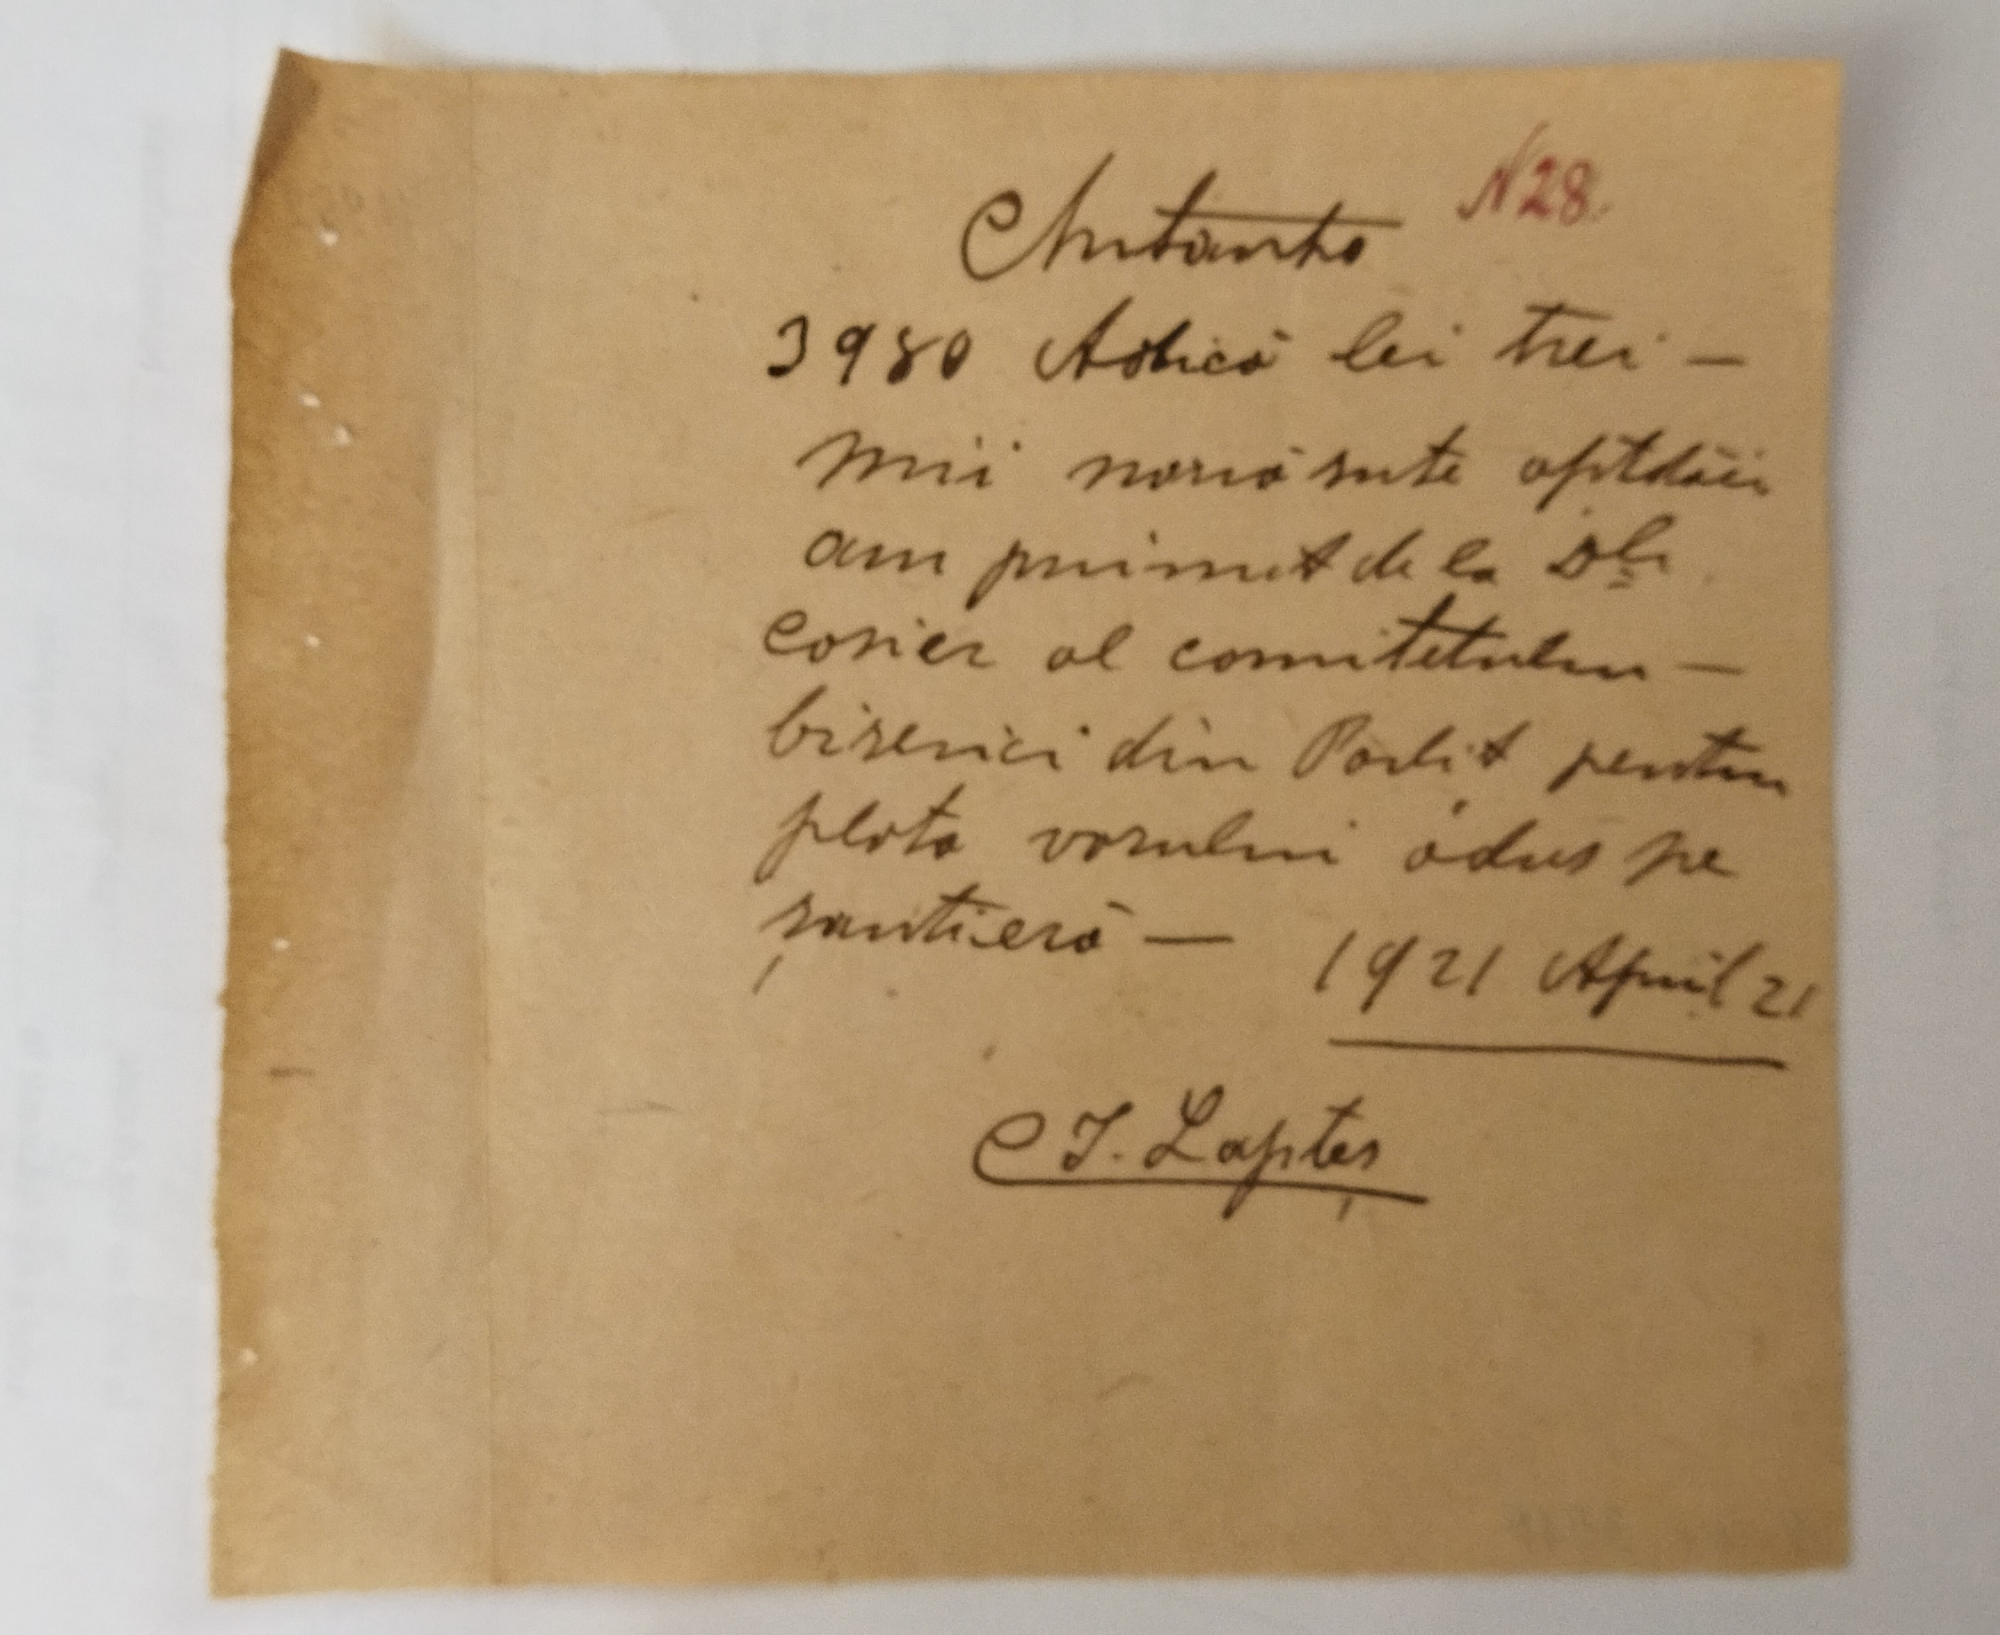 N 28.
Chitanță
3980 Adică lei trei —
mii nouă sute optzăci
am primit de la Dl
Casier al comitetului —
biserici din Parlit pentru
plata varului adus pe
șantieră — 1921 April 21
I. Lapteș